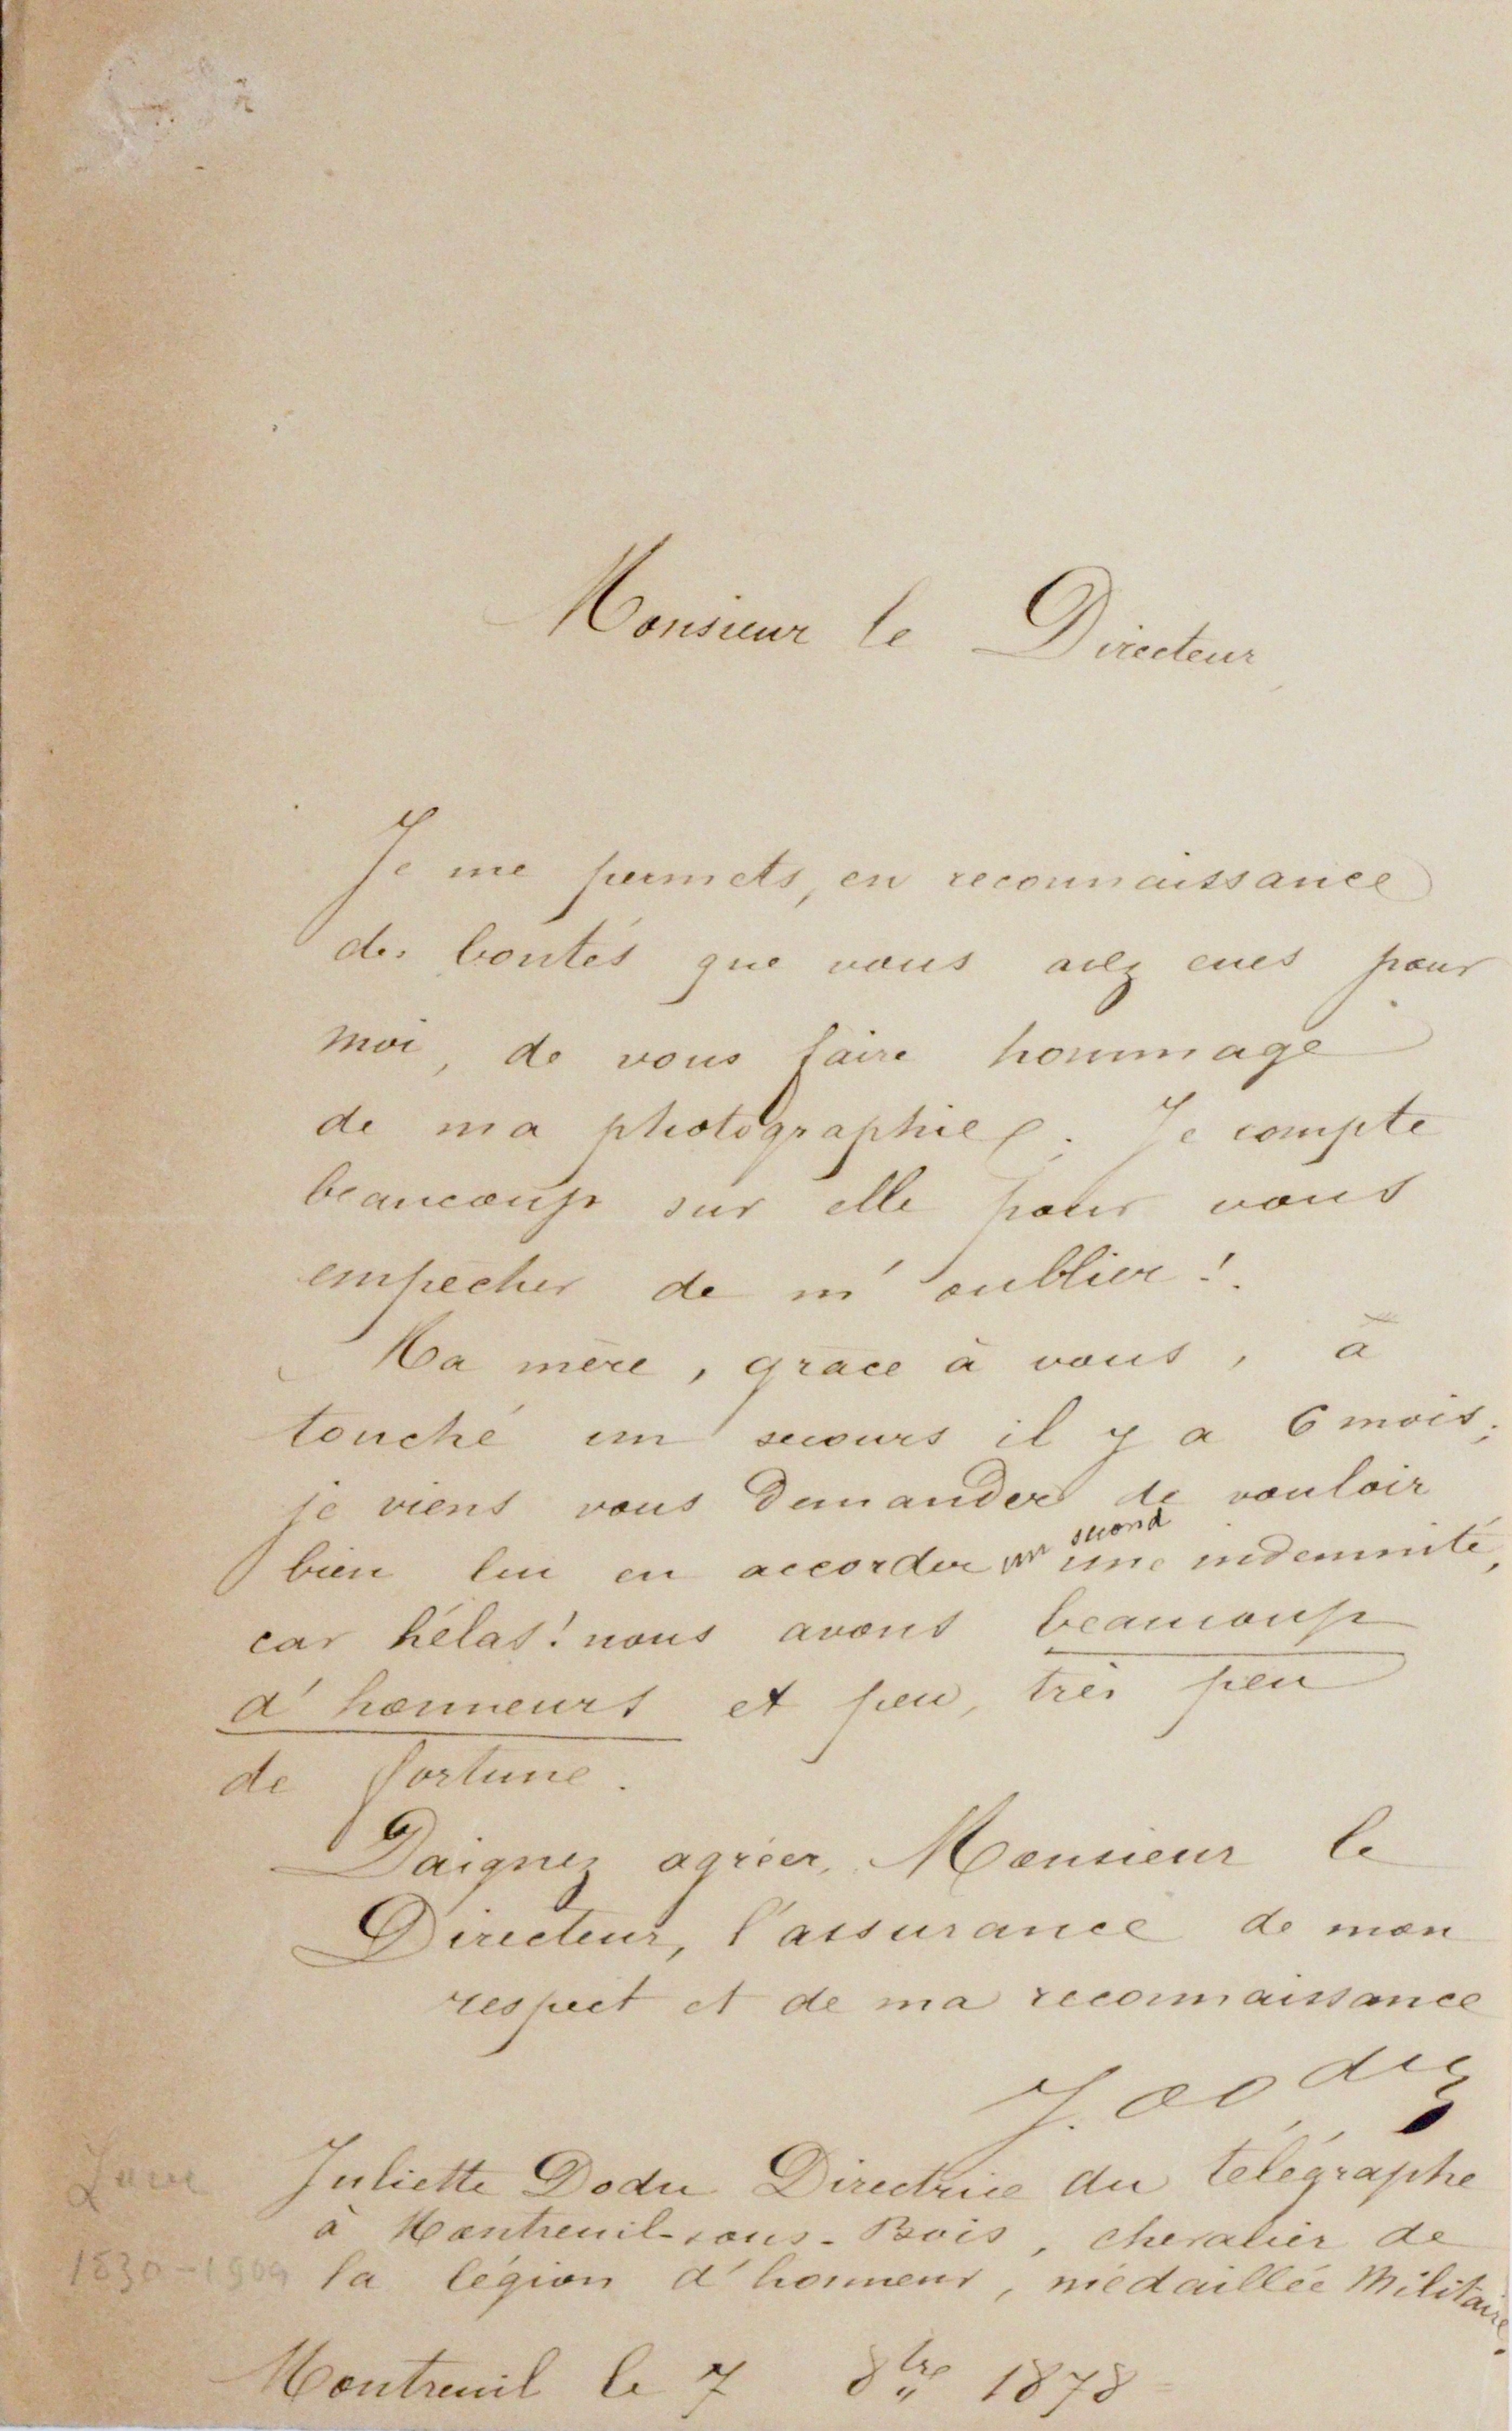 Monsieur le Directeur
Je me permets, en reconnaissance
des bontés que vous avez eues pour
moi, de vous faire hommage
de ma photographie. Je compte
beaucoup sur elle pour vous
empêcher de m'oublier !
Ma mère, grâce à vous, a
touché un secours il y a 6 mois;
je viens vous demander de vouloir
bien lui en accorder un second une indemnité,
car hélas! nous avons beaucoup
d'honneurs et peu, très peu
de fortune.
Daignez agréer, Monsieur le
Directeur, l'assurance de mon
respect et de ma reconnaissance
J. Dodu
Juliette Dodu Directrice du télégraphe
à Montreuil-sous-Bois, chevalier de
la légion d'honneur, médaillée Militaire.
1830-1909
Montreuil le 7 8bre 1878